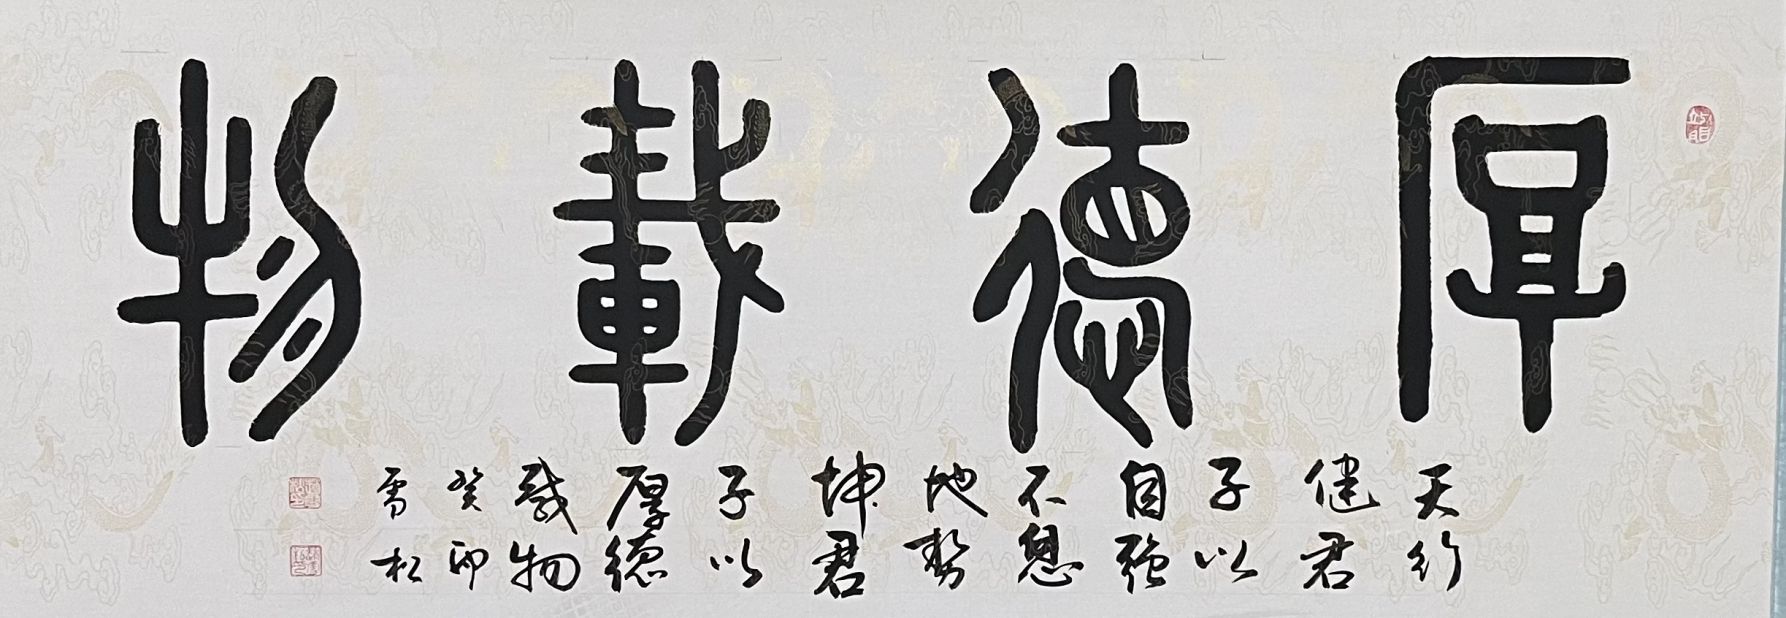 厚德載物
天行
健君
子以
自強
不息
地勢
坤君
子以
厚德
載物
癸卯
雪松